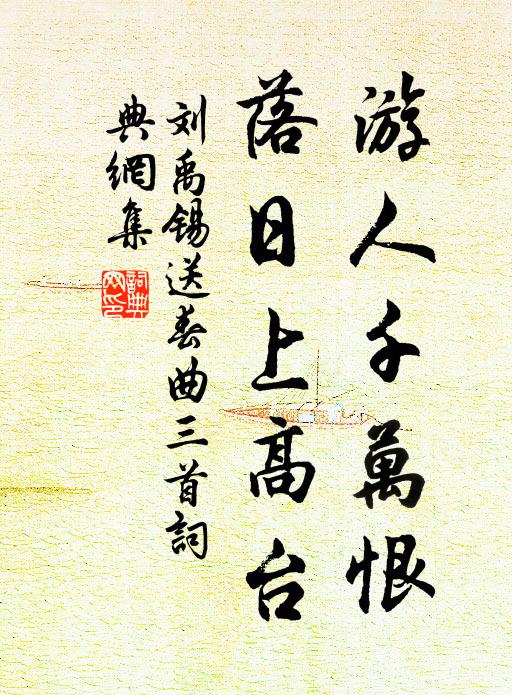 游人千萬恨
落日上高台
刘禹锡送春曲三首詞
典網集
詞典